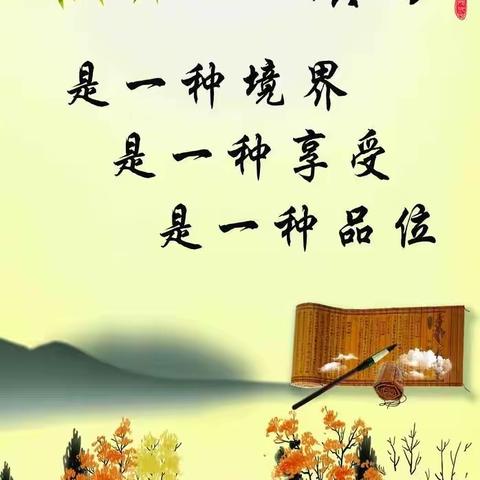 是一种境界
是一种享受
是一种品位